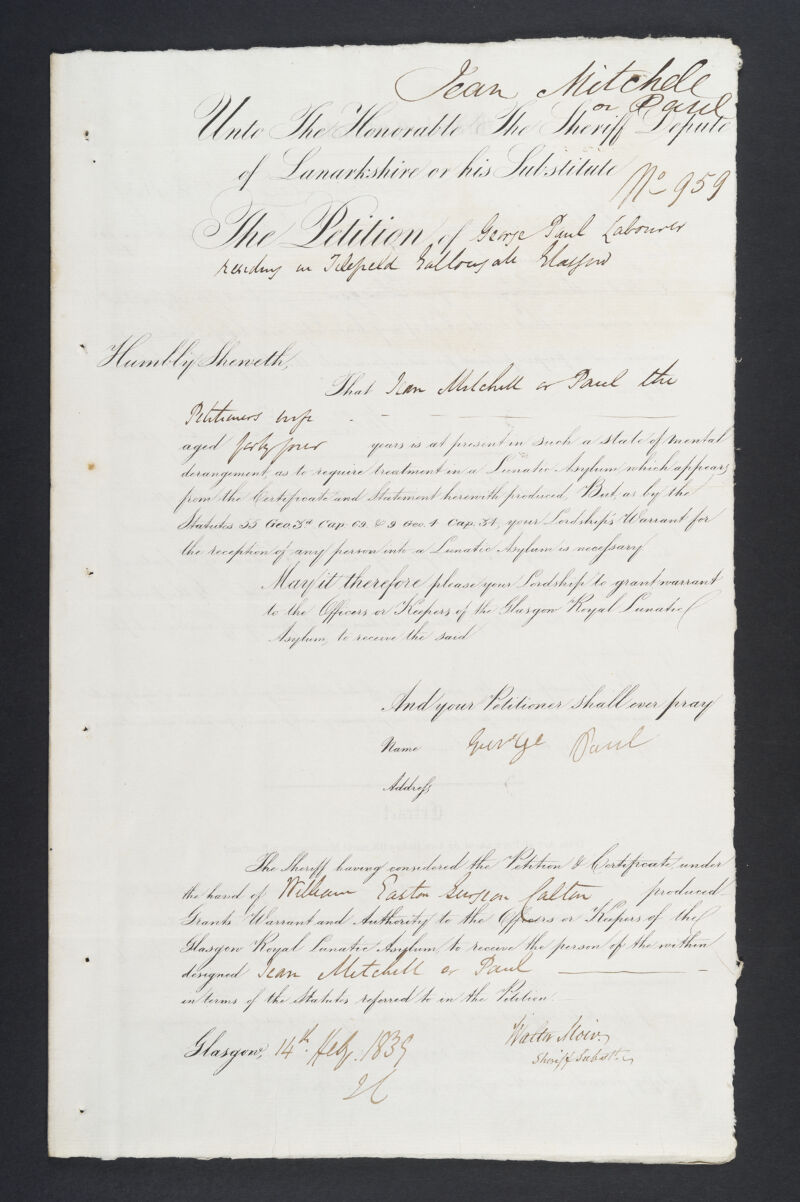 Jean Mitchell
or Paul
Unto The Honorable The Sheriff Depute
of Lanarkshire or his Substitute
No 959
The Petition of George Paul Labourer
residing in Gallowgate Glasgow
Humbly Sheweth,
That Jean Mitchell or Paul the
Petitioners wife
aged forty four years is at present in such a state of mental
derangement, as to require treatment in a Lunatic Asylum, which appears
from the Certificate and Statement herewith produced, But, as by the
Statutes 55 Geo. 3d Cap. 69. & 9 Geo. 4 Cap. 34, your Lordship's Warrant for
the reception of any person into a Lunatic Asylum is necessary
May it therefore please your Lordship to grant warrant
to the Officers or Keepers of the Glasgow Royal Lunatic
Asylum, to receive the said
And your Petitioner shall ever pray
Name George Paul
Address
The Sheriff having considered the Petition & Certificate, under
the hand of William Easton Surgeon Calton produced
Grants Warrant and Authority to the Officers or Keepers of the
Glasgow Royal Lunatic Asylum, to receive the person of the within
designed Jean Mitchell or Paul
in terms of the Statutes referred to in the Petition.
Glasgow, 14th Feby. 1839
Walter Moir,
Sheriff Substt.